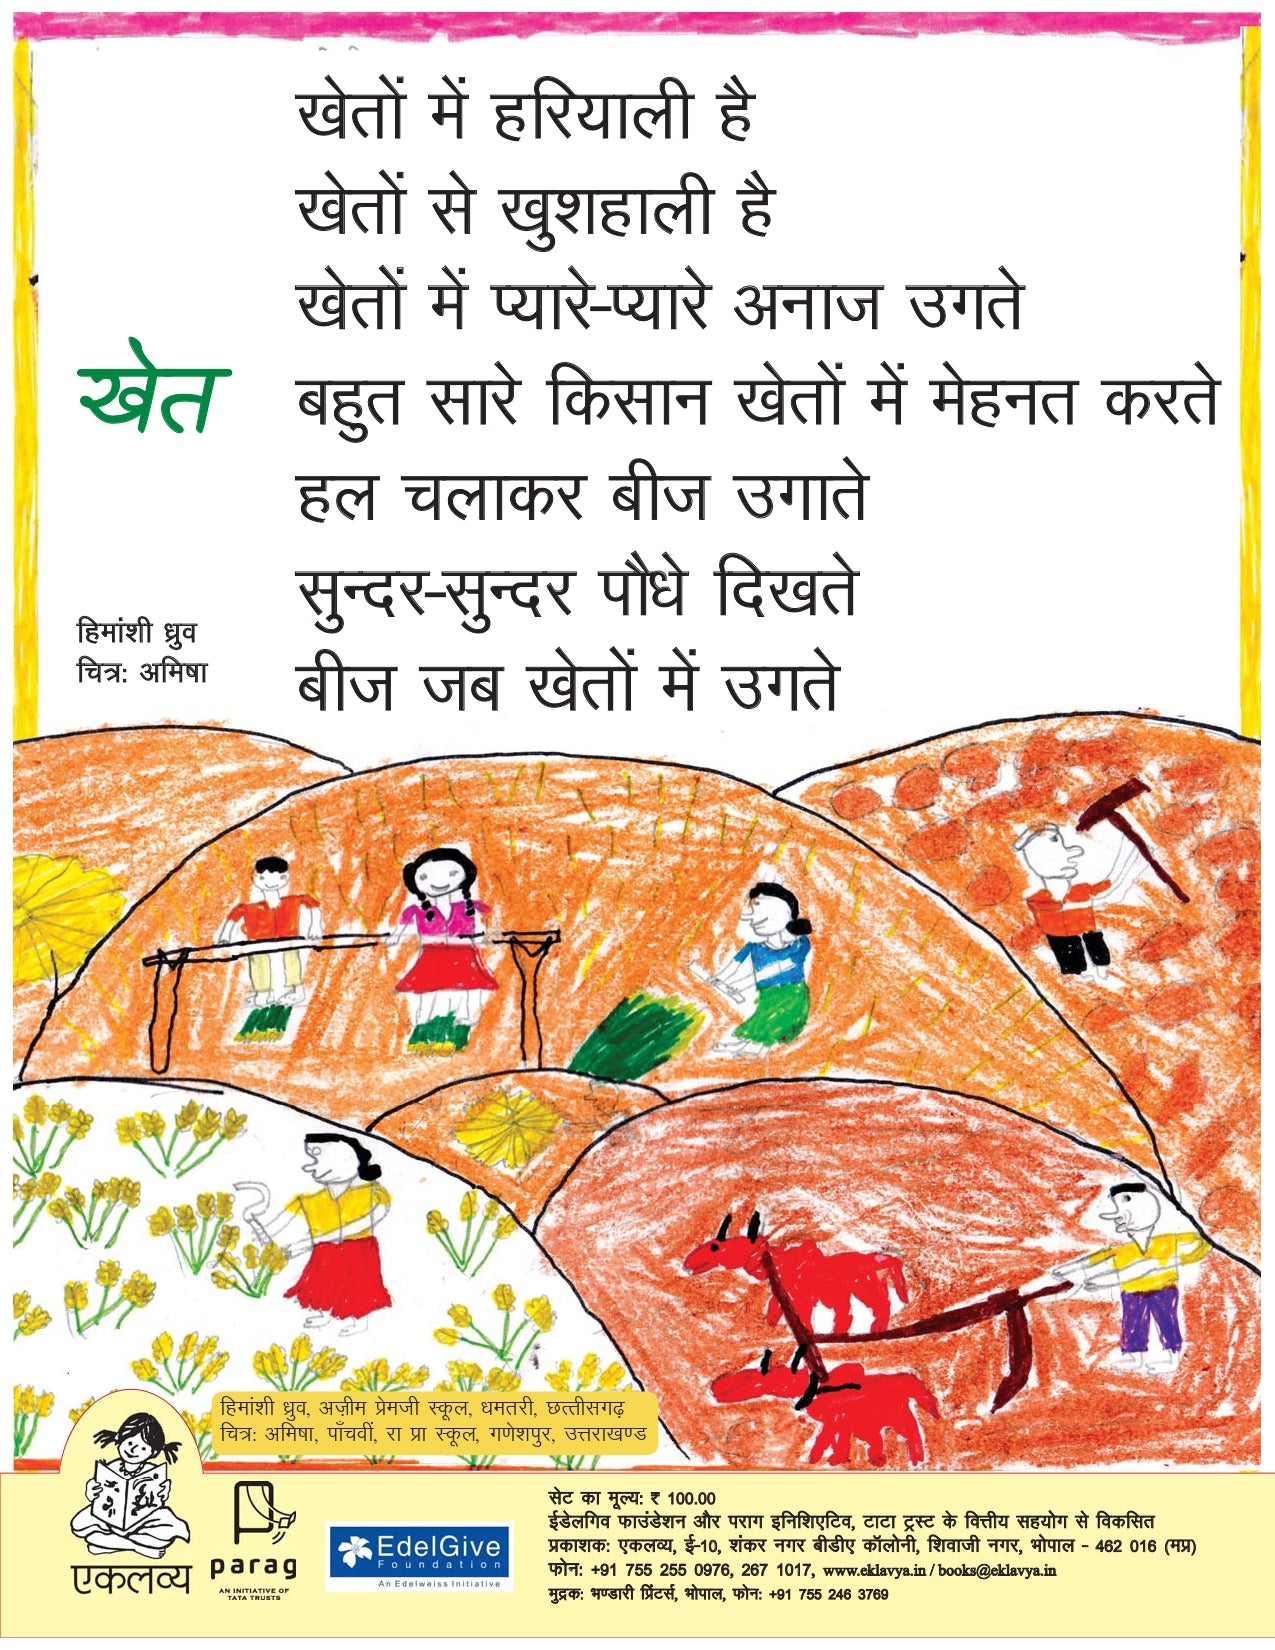 खेतों में हरियाली है
खेतों से खुशहाली है
खेतों में प्यारे-प्यारे अनाज उगते
खेत
बहुत सारे किसान खेतों में मेहनत करते
हल चलाकर बीज उगाते
सुन्दर-सुन्दर पौधे दिखते
बीज जब खेतों में उगते
हिमांशी ध्रुव
चित्र: अमिषा
हिमांशी ध्रुव, अज़ीम प्रेमजी स्कूल, धमतरी, छत्तीसगढ़
चित्र: अमिषा, पाँचवीं, रा प्रा स्कूल, गणेशपुर, उत्तराखण्ड
एकलव्य
parag
AN INITIATIVE OF
TATA TRUSTS
EdelGive
Foundation
An Edelweiss Initiative
सेट का मूल्य: ₹ 100.00
ईडेलगिव फाउंडेशन और पराग इनिशिएटिव, टाटा ट्रस्ट के वित्तीय सहयोग से विकसित
प्रकाशक: एकलव्य, ई-10, शंकर नगर बीडीए कॉलोनी, शिवाजी नगर, भोपाल - 462 016 (मप्र)
फोन: +91 755 255 0976, 267 1017, www.eklavya.in / books@eklavya.in
मुद्रक: भण्डारी प्रिंटर्स, भोपाल, फोन: +91 755 246 3769